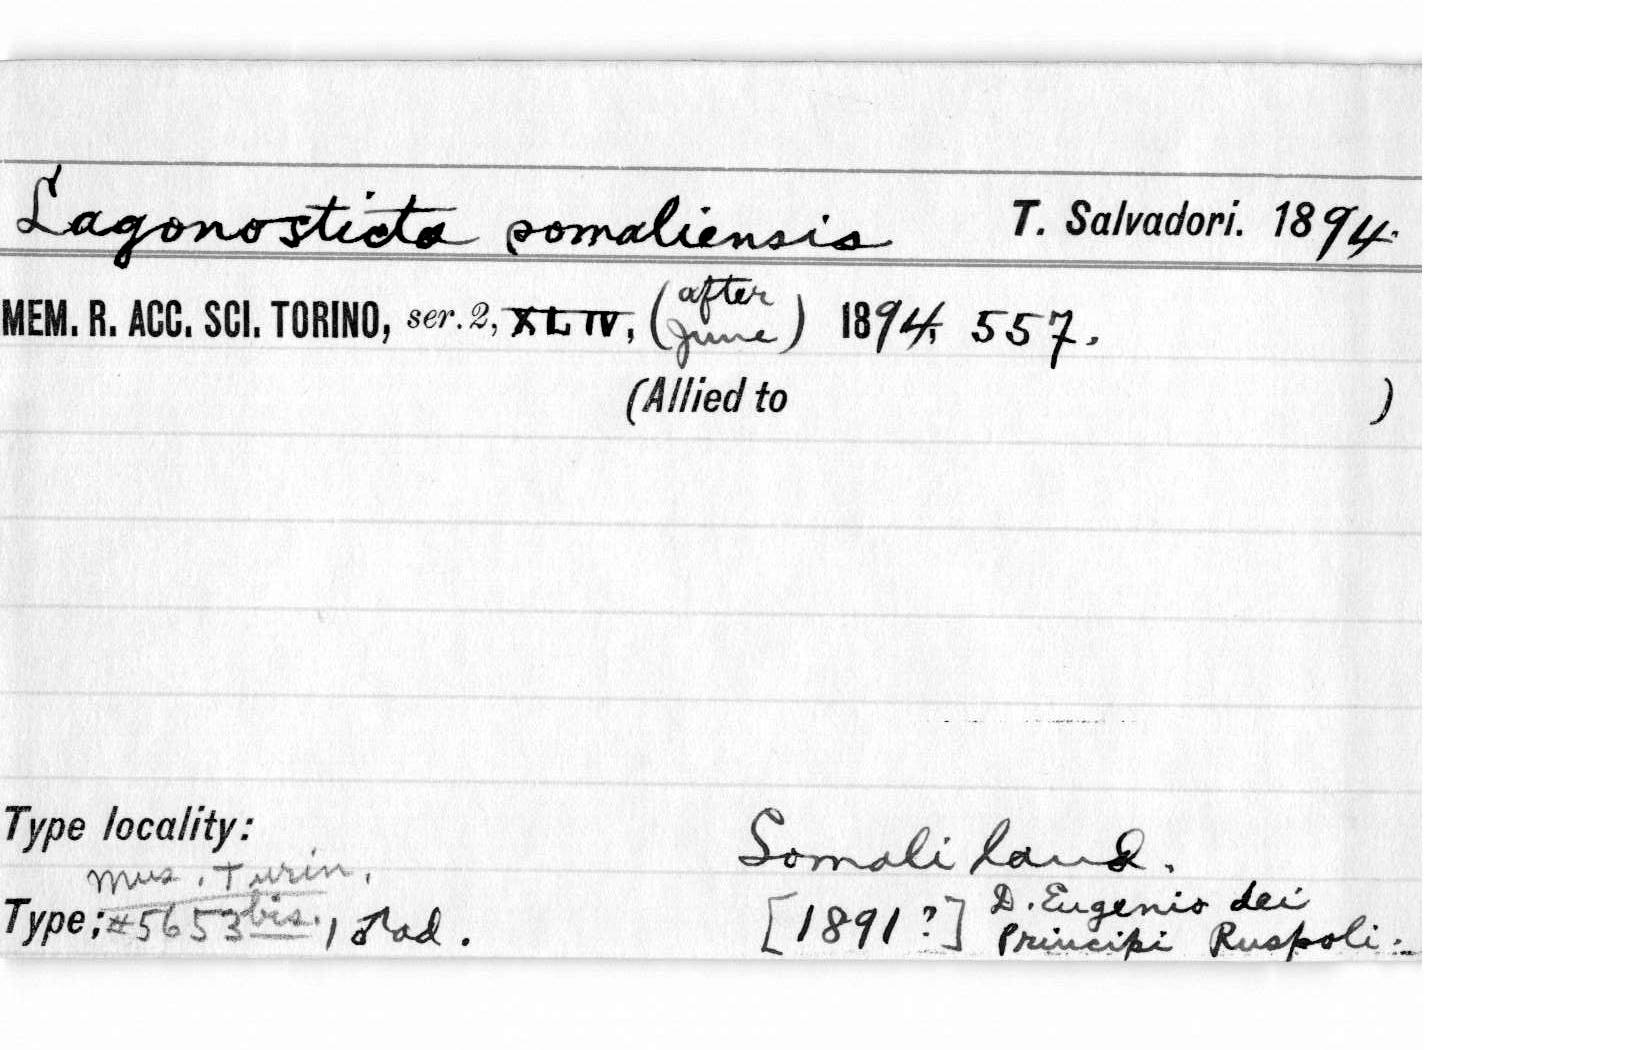 Lagonosticta somaliensis T. Salvadori. 1894.
MEM. R. ACC. SCI. TORINO, ser. 2, XLIV, (after June) 1894, 557.
(Allied to )
Type locality: Somali land.
Mus. Turin.
Type: #5653 bis. 1 ♂ ad. [1891?] D. Eugenio dei
Principi Ruspoli.